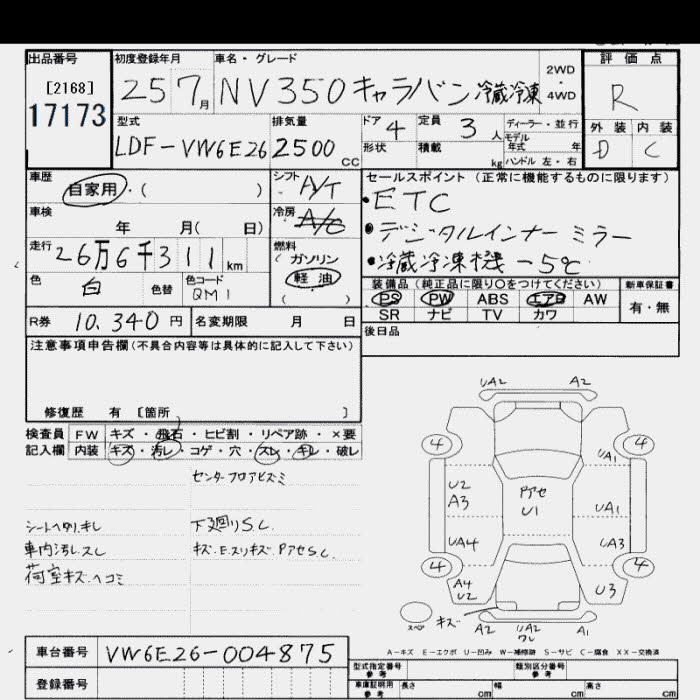 出品番号 初度登録年月 車名・グレード 2WD・4WD 評価点
[2168]
17173 25 7月 NV350キャラバン 冷蔵冷凍 R
型式 排気量 ドア 4 定員 3人 ディーラー・並行 外装 内装
LDF-VW6E26 2500cc 形状 積載 kg モデル年式 年 ハンドル 左・右 D C
車歴 自家用・( ) シフト A/T セールスポイント (正常に機能するものに限ります)
車検 年 月( 日) 冷房 A/C
・ETC
・デジタルインナーミラー
・冷蔵冷凍機 -5℃
走行 26万6千311km 燃料 ( ガソリン 軽油 ( )
色 白 色替 色コード QM1
装備品 (純正品に限り○をつけてください) 新車保証書
PS PW ABS エアB AW 有・無
SR ナビ TV カワ
R券 10,340円 名変期限 月 日 後日品
注意事項申告欄(不具合内容等は具体的に記入して下さい)
修復歴 有 [箇所 ]
検査員 FW キズ・飛石・ヒビ割・リペア跡・×要
記入欄 内装 キズ・汚レ・コゲ・穴・スレ・キレ・破レ
センターフロアヒズミ
シートヘタリ.キレ 下廻りS.C.
車内汚レ.スレ キズ.E.スリキズ.PアセS.C.
荷室キズ.ヘコミ
UA2 A2
4 4
UA1
U2 A3 Pアセ U1 UA1
UA4 UA3
4 4
A4 U2 U3
スペア キズ A2 UA2 ワレ A1
A-キズ E-エクボ U-凹み W-補修跡 S-サビ C-腐食 XX-交換済
車台番号 VW6E26-004875
登録番号
型式指定番号 参考 類別区分番号 参考
車庫証明用 参考 長さ cm 幅 cm 高さ cm